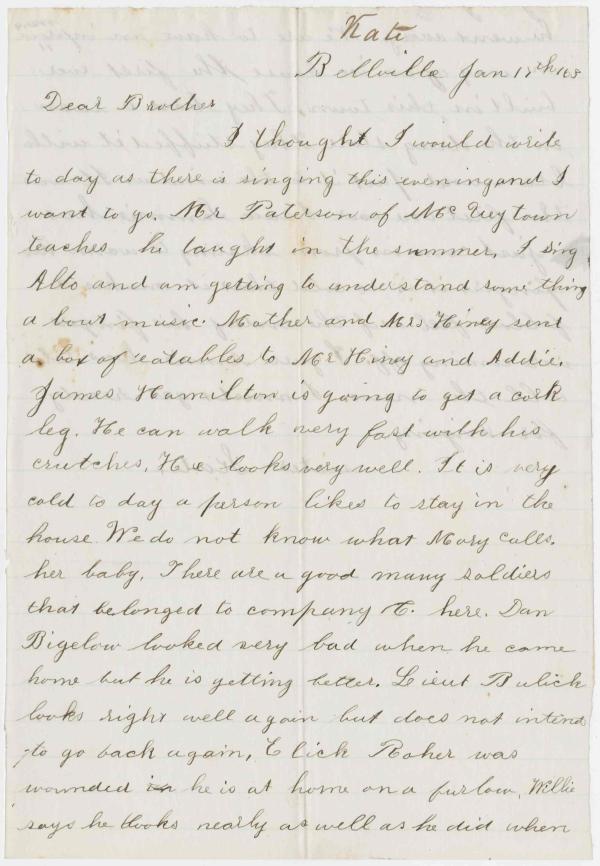 Kate
Bellville Jan 17th 163
Dear Brother
I thought I would write
to day as there is singing this evening and I
want to go. Mr Paterson of Mc Veytown
teaches he taught in the summer. I sing
Alto and am getting to understand some thing
a bout music. Mother and Mrs Hiney sent
a box of eatables to Mr Hiney and Addie.
James Hamilton is going to get a cork
leg. He can walk very fast with his
crutches. He looks very well. It is very
cold to day a person likes to stay in the
house We do not know what Mary calls.
her baby. There are a good many soldiers
that belonged to company C. here. Dan
Bigelow looked very bad when he came
home but he is getting better. Lieut Bulick
looks right well again but does not intend
to go back again, Click Roher was
wounded he is at home on a furlow. Willie
says he looks nearly as well as he did when